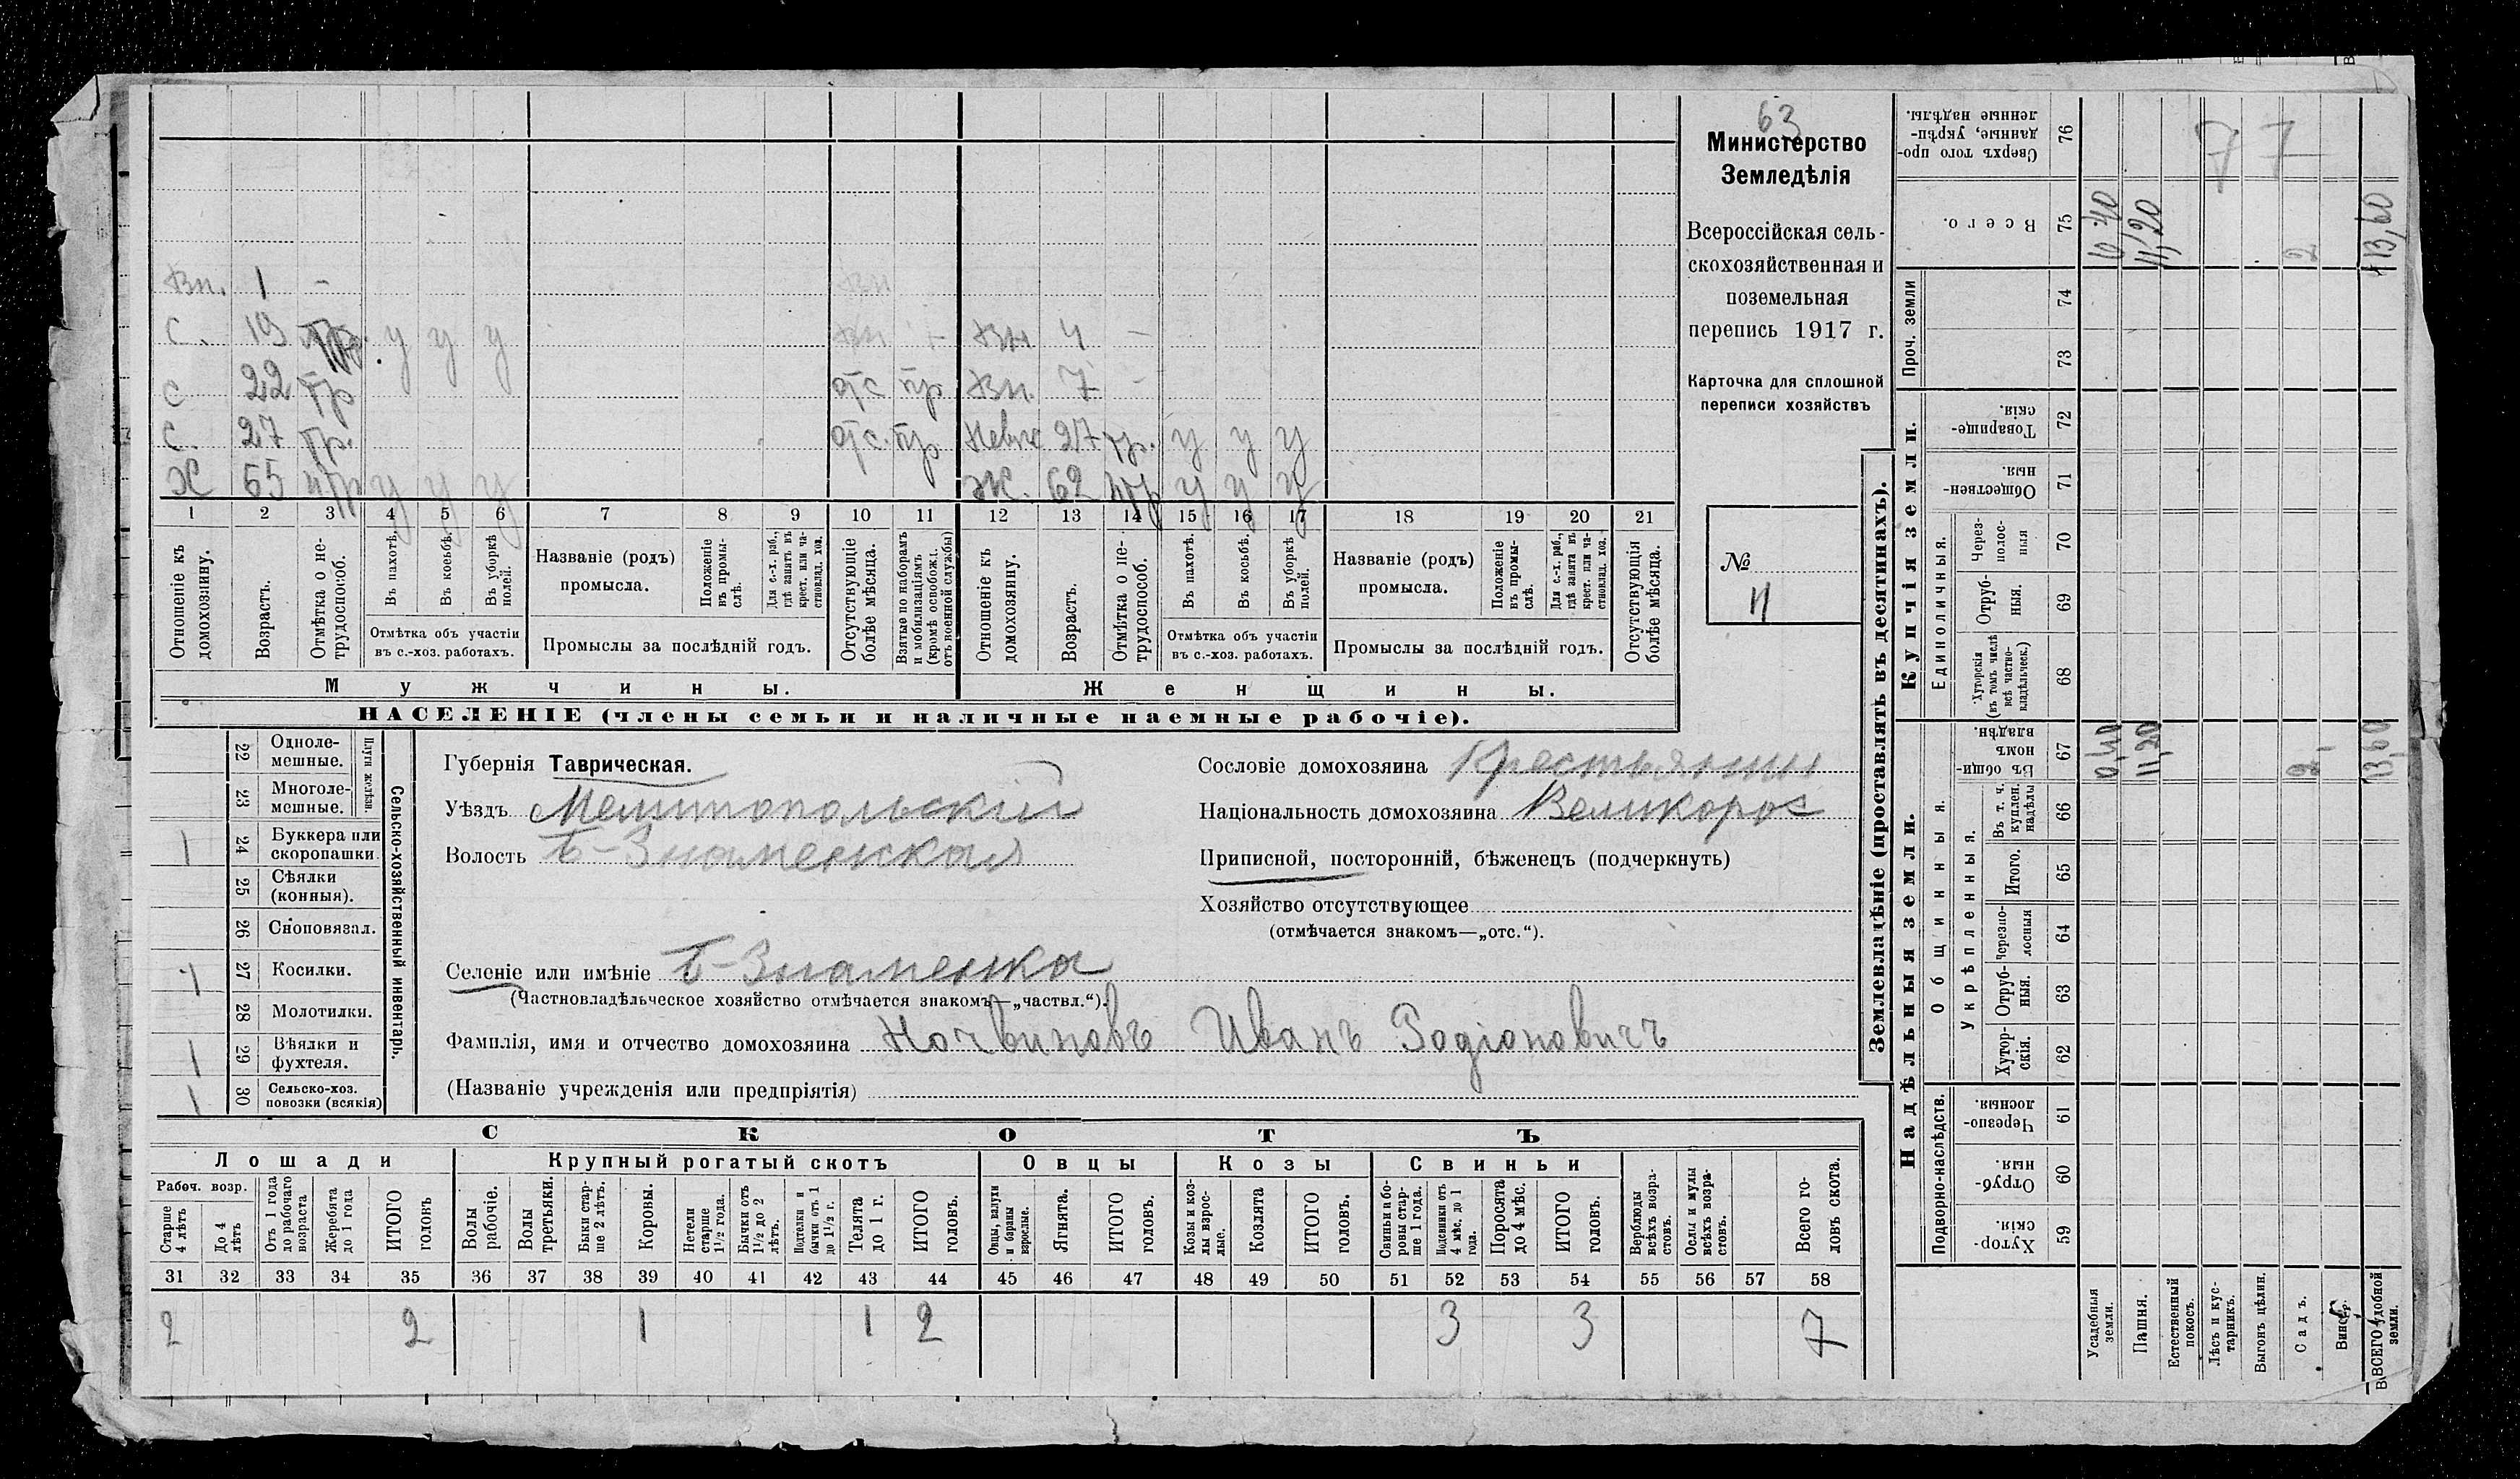 63
Министерство
Земледѣлія
Всероссійская сель-
скохозяйственная и
поземельная
перепись 1917 г.
Карточка для сплошной
переписи хозяйствъ
№
Вн. 1 -
С. 19 у у у Вн 4 -
С 22 тр отс пр Вн. 7 -
С. 27 тр. отс. пр 27 тр. у у у
Х 65 у у у Ж. 62 у у у
1 2 3 4 5 6 7 8 9 10 11 12 13 14 15 16 17 18 19 20 21
Отношеніе къ домохозяину.
Возрастъ.
Отмѣтка о не-трудоспособ.
Въ пахотѣ.
Въ косьбѣ.
Въ уборкѣ полей.
Отмѣтка объ участіи въ с.-хоз. работахъ.
Названіе (родъ) промысла.
Положеніе въ промы-слѣ.
Для с.-х. раб., гдѣ занятъ въ крест. или ча-стновлад. хоз.
Промыслы за послѣдній годъ.
Отсутствующіе болѣе мѣсяца.
Взятые по наборамъ и мобилизаціямъ (кромѣ освобожд. отъ военной службы)
Отношеніе къ домохозяину.
Возрастъ.
Отмѣтка о не-трудоспособ.
Въ пахотѣ.
Въ косьбѣ.
Въ уборкѣ полей.
Отмѣтка объ участіи въ с.-хоз. работахъ.
Названіе (родъ) промысла.
Положеніе въ промы-слѣ.
Для с.-х. раб., гдѣ занята въ крест. или ча-стновлад. хоз.
Промыслы за послѣдній годъ.
Отсутствующія болѣе мѣсяца.
Мужчины. Женщины.
НАСЕЛЕНІЕ (члены семьи и наличные наемные рабочіе).
Сельско-хозяйственный инвентарь.
22 Одноле-мешные.
23 Многоле-мешные.
1 24 Буккера или скоропашки.
25 Сѣялки (конныя).
26 Сноповязал.
1 27 Косилки.
28 Молотилки.
1 29 Вѣялки и фухтеля.
1 30 Сельско-хоз. повозки (всякія)
Губернія Таврическая.
Уѣздъ Мелитопольскій
Волость Б-Знаменская
Селеніе или имѣніе Б-Знаменка
(Частновладѣльческое хозяйство отмѣчается знакомъ—„частвл.“).
Фамилія, имя и отчество домохозяина Ночвиновъ Иванъ Родіоновичъ
(Названіе учрежденія или предпріятія)
Сословіе домохозяина Крестьянин
Національность домохозяина Великорос
Приписной, посторонній, бѣженецъ (подчеркнуть)
Хозяйство отсутствующее
(отмѣчается знакомъ—„отс.“).
СКОТЪ
Лошади Крупный рогатый скотъ Овцы Козы Свиньи
Рабоч. возр.
Старше 4 лѣтъ
До 4 лѣтъ
Отъ 1 года до рабочаго возраста
Жеребята до 1 года
ИТОГО головъ
Волы рабочіе.
Волы третьяки.
Быки стар-ше 2 лѣтъ.
Коровы.
Нетели старше 1½ года.
Бычки отъ 1½ до 2 лѣтъ.
Подтелки и бычки отъ 1 до 1½ г.
Телята до 1 г.
ИТОГО головъ.
Овцы, валухи и бараны взрослые.
Ягнята.
ИТОГО головъ.
Козы и коз-лы взрос-лые.
Козлята
ИТОГО головъ.
Свиньи и бо-ровы стар-ше 1 года.
Подсвинки отъ 4 мѣс. до 1 года.
Поросята до 4 мѣс.
ИТОГО головъ.
Верблюды всѣхъ возра-стовъ.
Ослы и мулы всѣхъ возра-стовъ.
Всего го-ловъ скота.
31 32 33 34 35 36 37 38 39 40 41 42 43 44 45 46 47 48 49 50 51 52 53 54 55 56 57 58
2 2 1 1 2 3 3 7
Землевладѣніе (проставлять въ десятинахъ).
Надѣльныя земли.
Купчія земли.
Проч. земли
Подворно-наслѣдств.
Общинныя.
Укрѣпленныя.
Единоличныя.
Сверхъ того про-данные, укрѣп-ленные надѣлы. 76
Всего. 75 11,20 2 13,60
74
73
Товарище-скія. 72
Обществен-ныя. 71
Через-полос-ныя 70
Отруб-ныя. 69
Хуторскія (въ томъ числѣ всѣ частно-владѣльческ.) 68
Въ общи-номъ владѣн. 67 0,40 11,20 2,- 13,60
Въ т. ч. куплен. надѣлы 66
Итого. 65
Черезпо-лосныя 64
Отруб-ныя. 63
Хутор-скія. 62
Черезпо-лосныя. 61
Отруб-ныя. 60
Хутор-скія. 59
Усадебныя земли.
Пашня.
Естественный покосъ.
Лѣсъ и кус-тарникъ.
Выгонъ цѣлин.
Садъ.
ВСЕГО удобной земли.
7 7